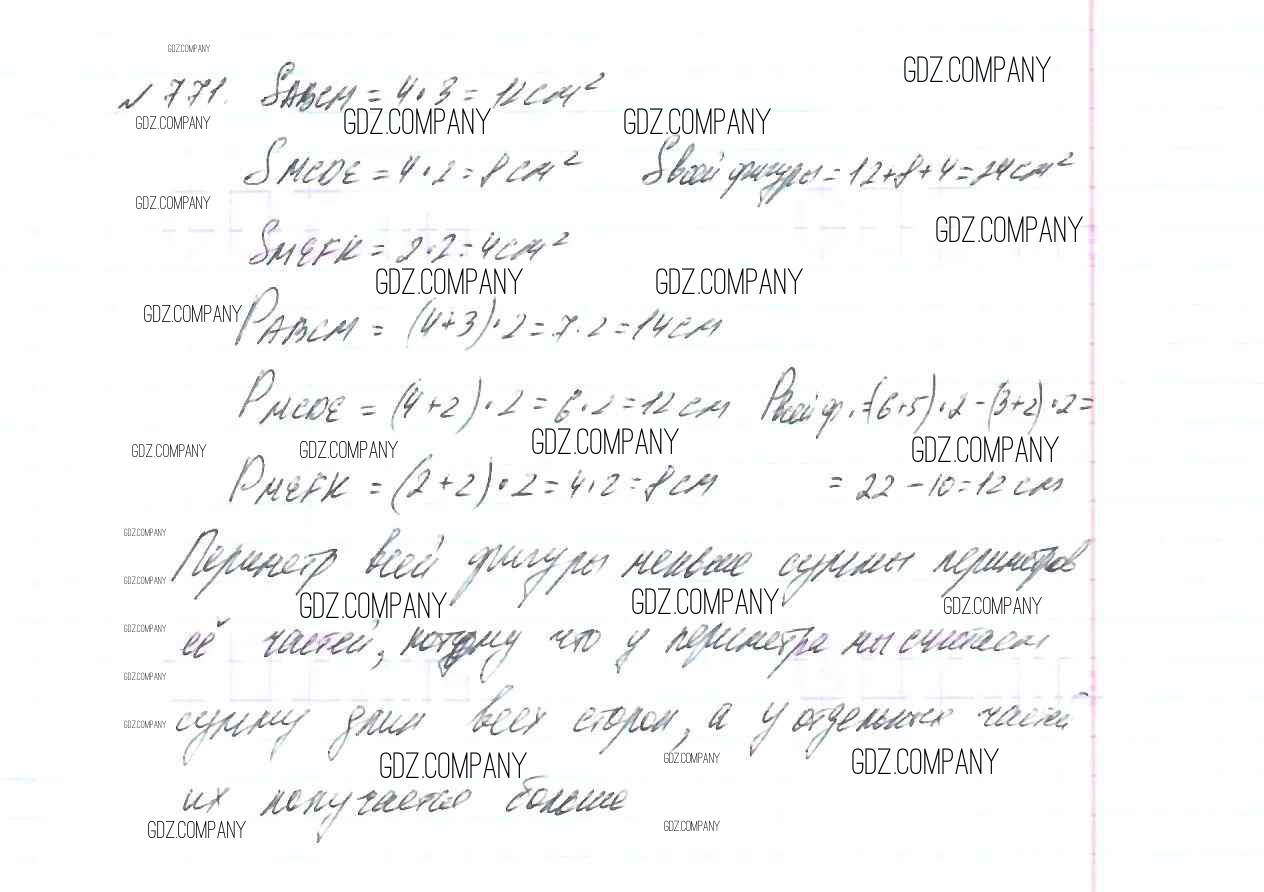 GDZ.COMPANY
№ 771. SABCM = 4·3 = 12 см²
GDZ.COMPANY
GDZ.COMPANY GDZ.COMPANY GDZ.COMPANY
SMCDE = 4·2 = 8 см² Sвсей фигуры = 12+8+4 = 24 см²
GDZ.COMPANY
GDZ.COMPANY
SMEFK = 2·2 = 4 см²
GDZ.COMPANY GDZ.COMPANY
GDZ.COMPANY
PABCM = (4+3)·2 = 7·2 = 14 см
PMCDE = (4+2)·2 = 6·2 = 12 см Pвсей ф. = (6+5)·2 - (3+2)·2 =
GDZ.COMPANY GDZ.COMPANY GDZ.COMPANY GDZ.COMPANY
PMEFK = (2+2)·2 = 4·2 = 8 см = 22 - 10 = 12 см
GDZ.COMPANY
Периметр всей фигуры меньше суммы периметров
GDZ.COMPANY
GDZ.COMPANY GDZ.COMPANY GDZ.COMPANY
GDZ.COMPANY
её частей, потому что у периметра мы считаем
GDZ.COMPANY
сумму длин всех сторон, а у отдельных частей
GDZ.COMPANY
GDZ.COMPANY GDZ.COMPANY GDZ.COMPANY
их получается больше
GDZ.COMPANY GDZ.COMPANY